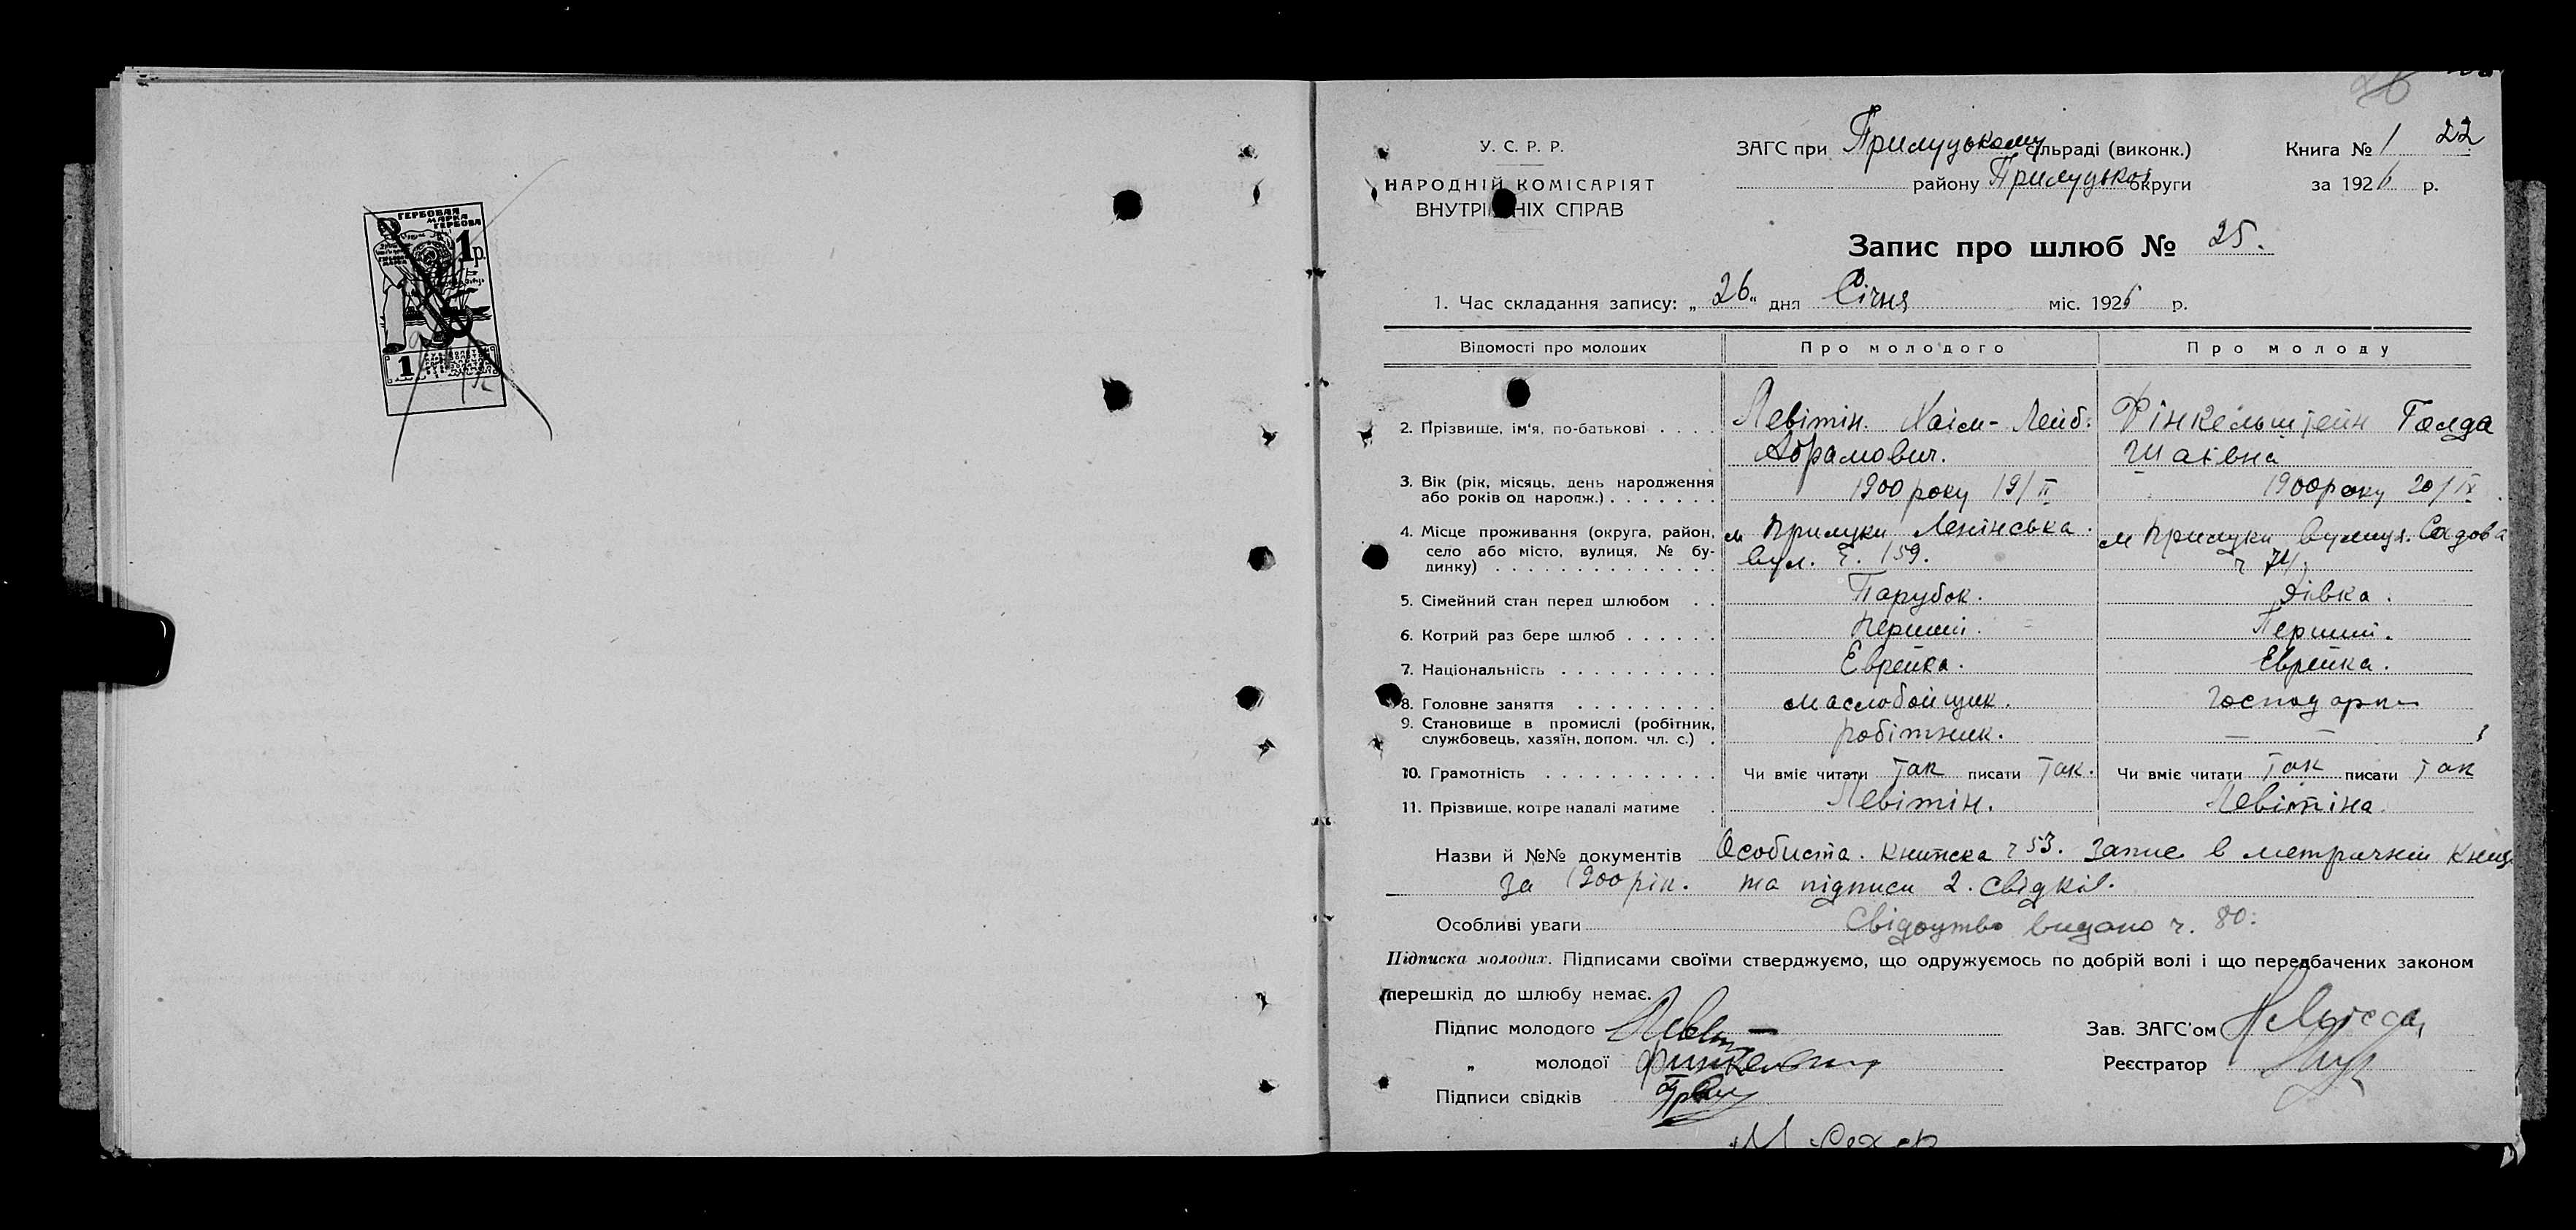 ГЕРБОВАЯ
МАРКА
ГЕРБОВА
1 р.
1
22
У. С. Р. Р.
НАРОДНІЙ КОМІСАРІЯТ
ВНУТРІШНІХ СПРАВ
ЗАГС при Прилуцькому сільраді (виконк.)
району Прилуцької округи
Книга № 1
за 1926 р.
Запис про шлюб № 25.
1. Час складання запису: „26" дня Січня міс. 1926 р.
Відомості про молодих Про молодого Про молоду
2. Прізвище, ім'я, по-батькові . . . . Левітін. Хаім-Лейб: Фінкельштейн Голда
Абрамович. Шаівна
3. Вік (рік, місяць, день народження
або років од народж.) . . . . . . . 1900 року 19/II 1900 року 20/IX
4. Місце проживання (округа, район, м Прилуки Ленінська м Прилуки вулиця. Садова
село або місто, вулиця, № бу-
динку) . . . . . . . . . . . . . . вул. ч. 159. ч 74.
5. Сімейний стан перед шлюбом . . Парубок. Дівка.
6. Котрий раз бере шлюб . . . . . . Перший. Перший.
7. Національність . . . . . . . . . . Еврейка. Еврейка.
8. Головне заняття . . . . . . . . . маслобойщик. господарка
9. Становище в промислі (робітник,
службовець, хазяїн, допом. чл. с.) . робітник. — —
10. Грамотність . . . . . . . . . . . Чи вміє читати так писати так. Чи вміє читати так писати так
11. Прізвище, котре надалі матиме . Левітін. Левітіна.
Назви й №№ документів Особиста. книжка ч 53. Запис в метричній книз
за 1900 рік. та підписи 2. свідків.
Особливі уваги Свідоцтво видано ч. 80.
Підписка молодих. Підписами своїми стверджуємо, що одружуємось по добрій волі і що передбачених законом
перешкід до шлюбу немає.
Підпис молодого Зав. ЗАГС'ом
„ молодої Реєстратор
Підписи свідків